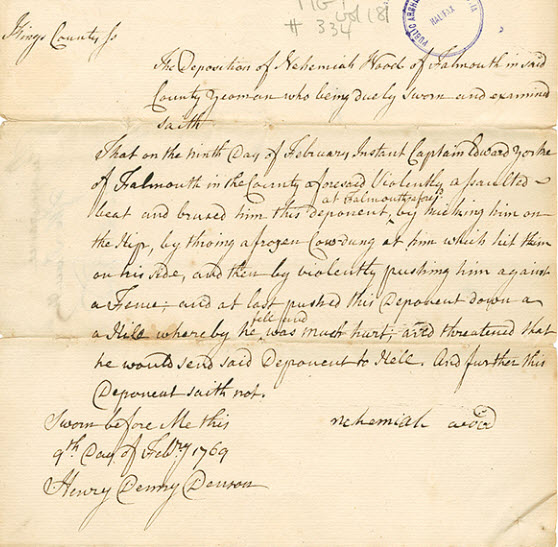 MG 1 vol 181
# 334
PUBLIC ARCHIVES
HALIFAX
Kings County Ss
The Deposition of Nehemiah Wood of Falmouth in said
County Yeoman who being duely Sworn and examined
saith
That on the ninth Day of February Instant Captain Edward Yorke
of Falmouth in the County aforesaid Violently assaulted
at Falmouth aforesd
beat and brused him this deponent, by kicking him on
the Hip, by throing a frozen Cowdung at him which hit him
on his side, and then by violently pushing him against
a Fence; and at last pushed this Deponent down a
fell and
a Hill whereby he was much hurt; and threatened that
he would send said Deponent to Hell. And further this
Deponent saith not.
Sworn before Me this
nehemiah wood
9th Day of Febry 1769
Henry Denny Denson